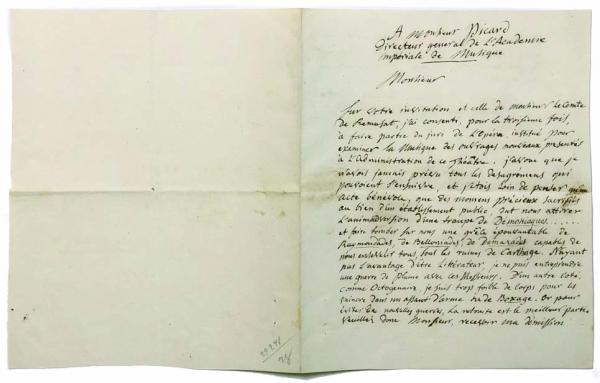 A Monsieur Picard
Directeur general de L'Academie
impériale de Musique
Monsieur
Sur votre invitation et celle de monsieur le comte
de Remusat, j'ai consenti, pour la troisieme fois,
à faire partie du juri de L'opera, institué pour
examiner la Musique des ouvrages nouveaux presentés
à L'Administration de ce Théâtre. j'avoue que je
n'avois jamais prévu tous les desagremens qui
pouvoient s'ensuivre, et j'étois loin de penser qu'un
acte bénévole, que des momens précieux sacrifiés
au bien d'un établissement public, dut nous attirer
L'animadversion d'une troupe de Démoniaques .....
et faire tomber sur nous une grêle épouvantable de
Raymondades, de Belloniades, de Demarades capables de
nous ensevelir tous, sous les ruines de Carthage. N'ayant
pas L'avantage d'être Littérateur, je ne puis entreprendre
une guerre de Plume avec les Messieurs. D'un autre coté,
comme Octogenaire, je suis trop foible de corps pour les
suivre dans un assaut d'arme ou de Boxage. Or pour
eviter de nouvelles querelles, La retraite est le meilleur parti.
veuillez donc Monsieur, recevoir ma démission